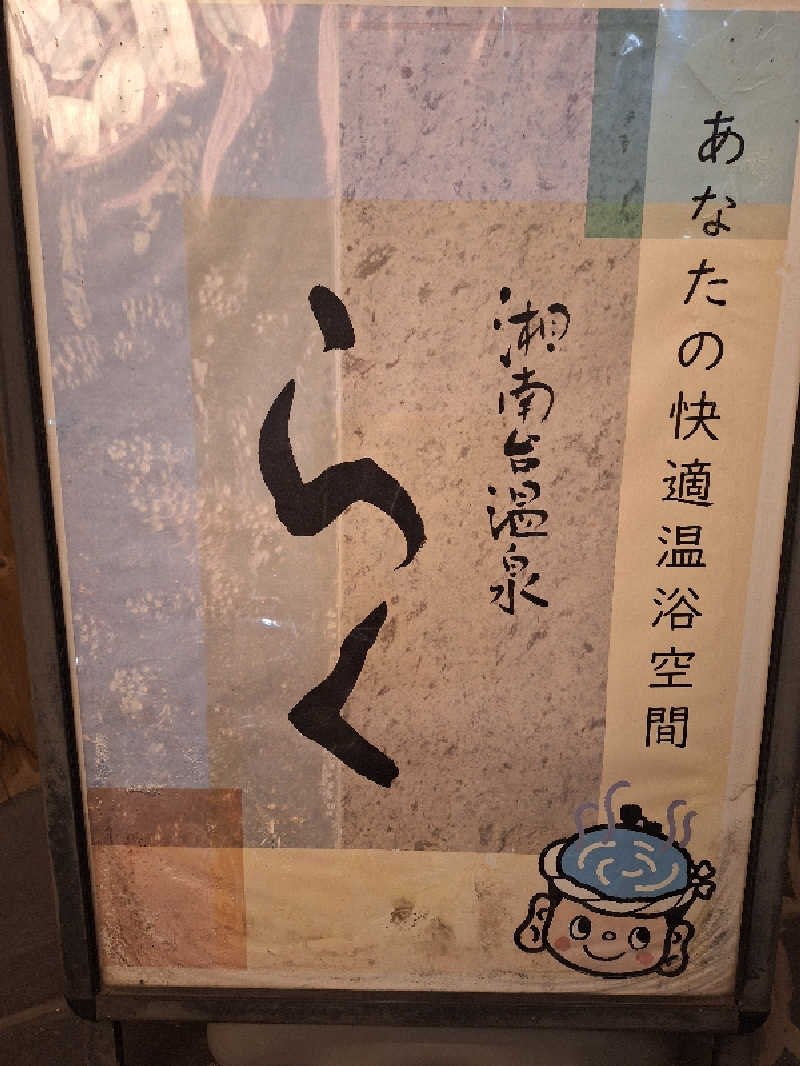 あなたの快適温浴空間
湘南台温泉
らく